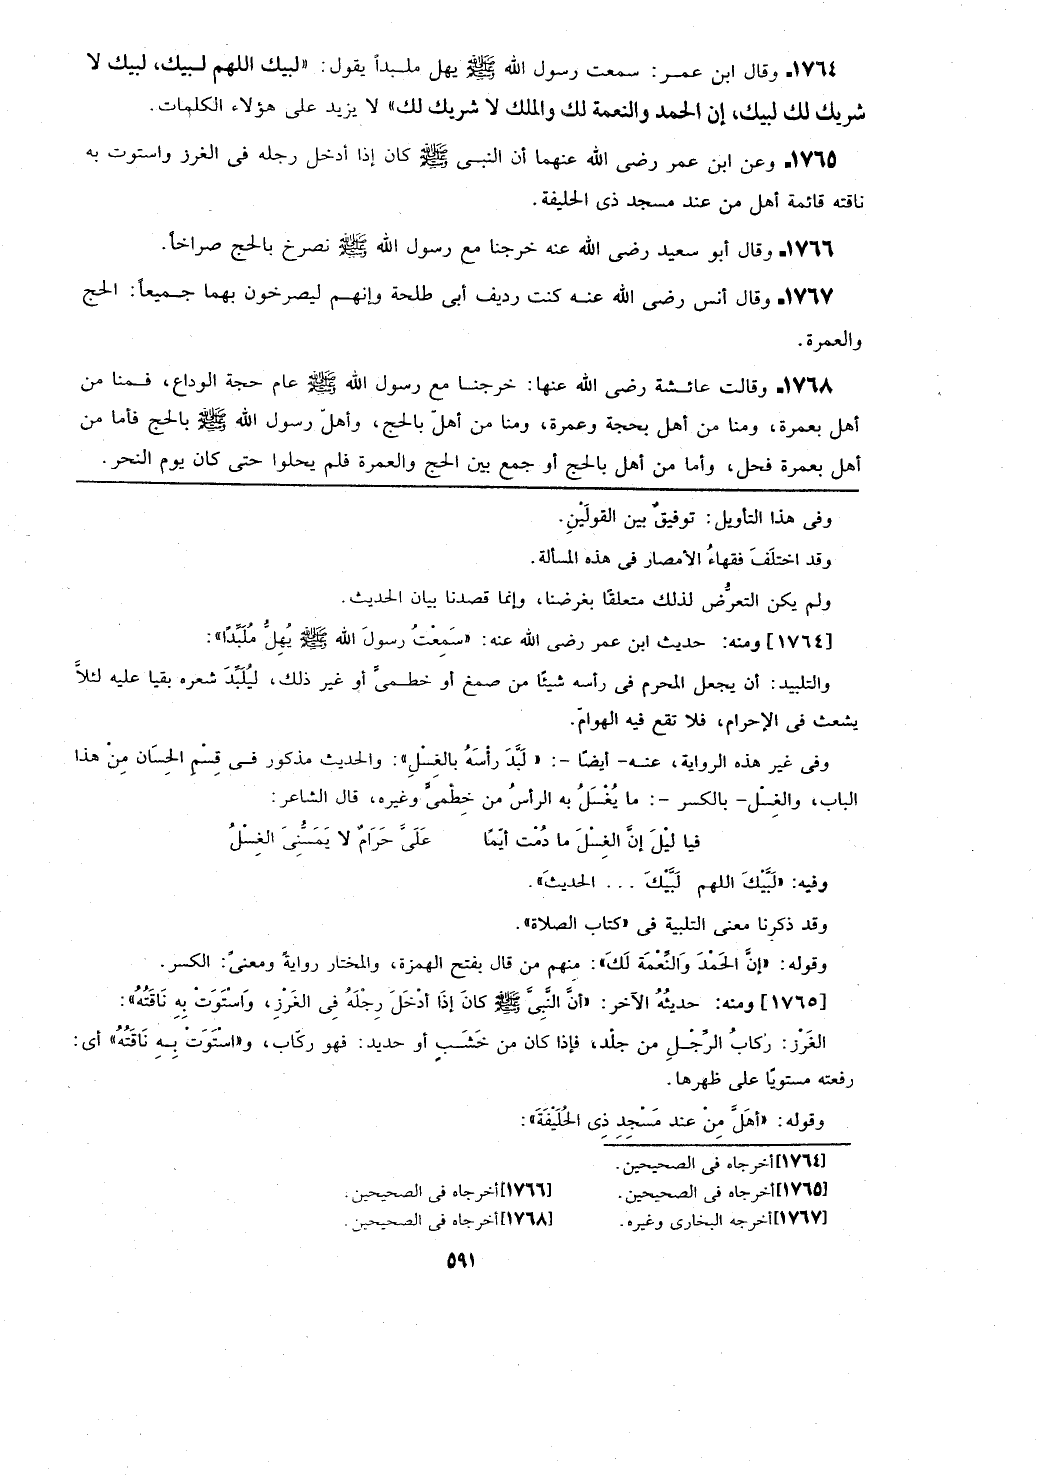 ١٧٦٤ـ وقال ابن عمـر: سمعت رسول الله ﷺ يهل ملـبداً يقول: «لبيك اللهم لـبيك، لبيك لا
شريك لك لبيك، إن الحمد والنعمة لك والملك لا شريك لك» لا يزيد على هؤلاء الكلمات.
١٧٦٥ـ وعن ابن عمر رضى الله عنهما أن النبـى ﷺ كان إذا أدخل رجله فى الغرز واستوت به
ناقته قائمة أهل من عند مسجد ذى الحليفة.
١٧٦٦ـ وقال أبو سعيد رضى الله عنه خرجنا مع رسول الله ﷺ نصرخ بالحج صراخاً.
١٧٦٧ـ وقال أنس رضى الله عنـه كنت رديف أبى طلحة وإنهـم ليصرخون بهما جـميعاً: الحج
والعمرة.
١٧٦٨ـ وقالت عائـشة رضى الله عنها: خرجنـا مع رسول الله ﷺ عام حجة الوداع، فـمنا من
أهل بعمرة، ومنا من أهل بحجة وعمرة، ومنا من أهلّ بالحج، وأهلّ رسول الله ﷺ بالحج فأما من
أهل بعمرة فحل، وأما من أهل بالحج أو جمع بين الحج والعمرة فلم يحلوا حتى كان يوم النحر.
وفى هذا التأويل: توفيقٌ بين القولَيْنِ.
وقد اختلَفَ فقهاءُ الأمصار فى هذه المسألة.
ولم يكن التعرُّض لذلك متعلقًا بغرضنا، وإنما قصدنا بيان الحديث.
[١٧٦٤] ومنه: حديث ابن عمر رضى الله عنه: «سَمِعْتُ رسولَ الله ﷺ يُهِلُّ مُلَبِّدًا»:
والتلبيد: أن يجعل المحرم فى رأسه شيئًا من صمغ أو خطـمىًّ أو غير ذلك، ليُلَبِّدَ شعره بقيا عليه لئلاَّ
يشعث فى الإحرام، فلا تقع فيه الهوامّ.
وفى غير هذه الرواية، عنـه- أيضًا -: « لَبَّدَ رأْسَهُ بالغِسْلِ»: والحديث مذكور فـى قِسْمِ الحِسَان مِنْ هذا
الباب، والغِسْل- بالكسر -: ما يُغْسَلُ به الرأسُ من خِطْمىًّ وغيره، قال الشاعر:
فيا لَيْلَ إنَّ الغِسْلَ ما دُمْت أيّمًا عَلَىَّ حَرَامٌ لا يَمَسُّنِىَ الغِسْلُ
وفيه: «لَبَّيْكَ اللهم لَبَّيْكَ ... الحديثَ».
وقد ذكرنا معنى التلبية فى «كتاب الصلاة».
وقوله: «إنَّ الحَمْدَ وَالنِّعْمَة لَكَ»: منهم من قال بفتح الهمزة، والمختار روايةً ومعنىً: الكسر.
[١٧٦٥] ومنه: حديثُهُ الآخر: «أنَّ النَّبِىَّ ﷺ كانَ إذَا أدْخَلَ رِجْلَهُ فِى الغَرْزِ، وَاسْتَوَتْ بِهِ نَاقَتُهُ»:
الغَرْز: رِكابُ الرِّجْـلِ من جلْد، فإذا كان من خَشَـبٍ أو حديد: فهو ركَاب، و«اسْتَوَتْ بِـهِ نَاقَتُهُ» أى:
رفعته مستويًا على ظهرها.
وقوله: «أهَلَّ مِنْ عند مَسْجِدِ ذِى الحُلَيْفَةَ»:
[١٧٦٤]أخرجاه فى الصحيحين.
[١٧٦٥]أخرجاه فى الصحيحين. [١٧٦٦]أخرجاه فى الصحيحين.
[١٧٦٧]أخرجه البخارى وغيره. [١٧٦٨]أخرجاه فى الصحيحين.
٥٩١